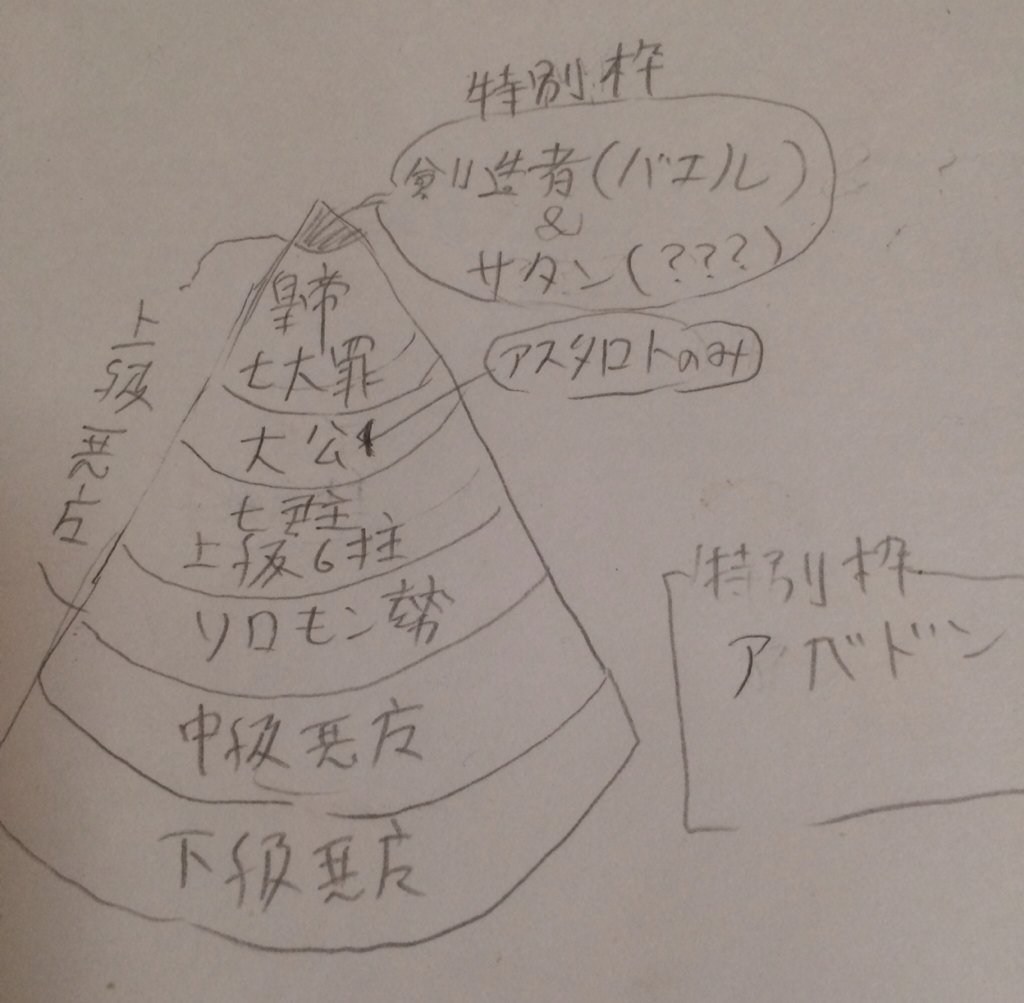 特別枠
創造者(バエル)
&
サタン(???)
皇帝
七大罪
アスタロトのみ
大公
七君主
上級6柱
ソロモン勢
上級悪魔
中級悪魔
下級悪魔
特別枠
アバドン